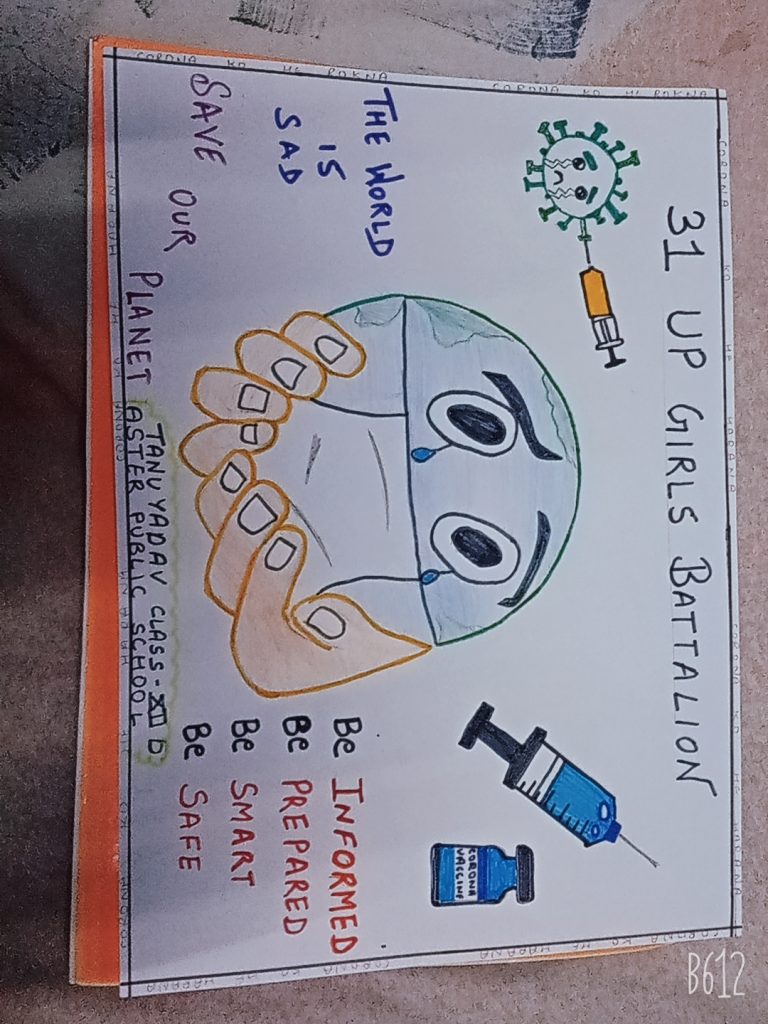 31 UP GIRLS BATTALION
THE WORLD
IS
SAD
SAVE OUR PLANET
CORONA
VACCINE
Be INFORMED
Be PREPARED
Be SMART
Be SAFE
TANU YADAV CLASS-XII D
ASTER PUBLIC SCHOOL
CORONA KO HE ROKNA
CORONA KO HE ROKNA
B612